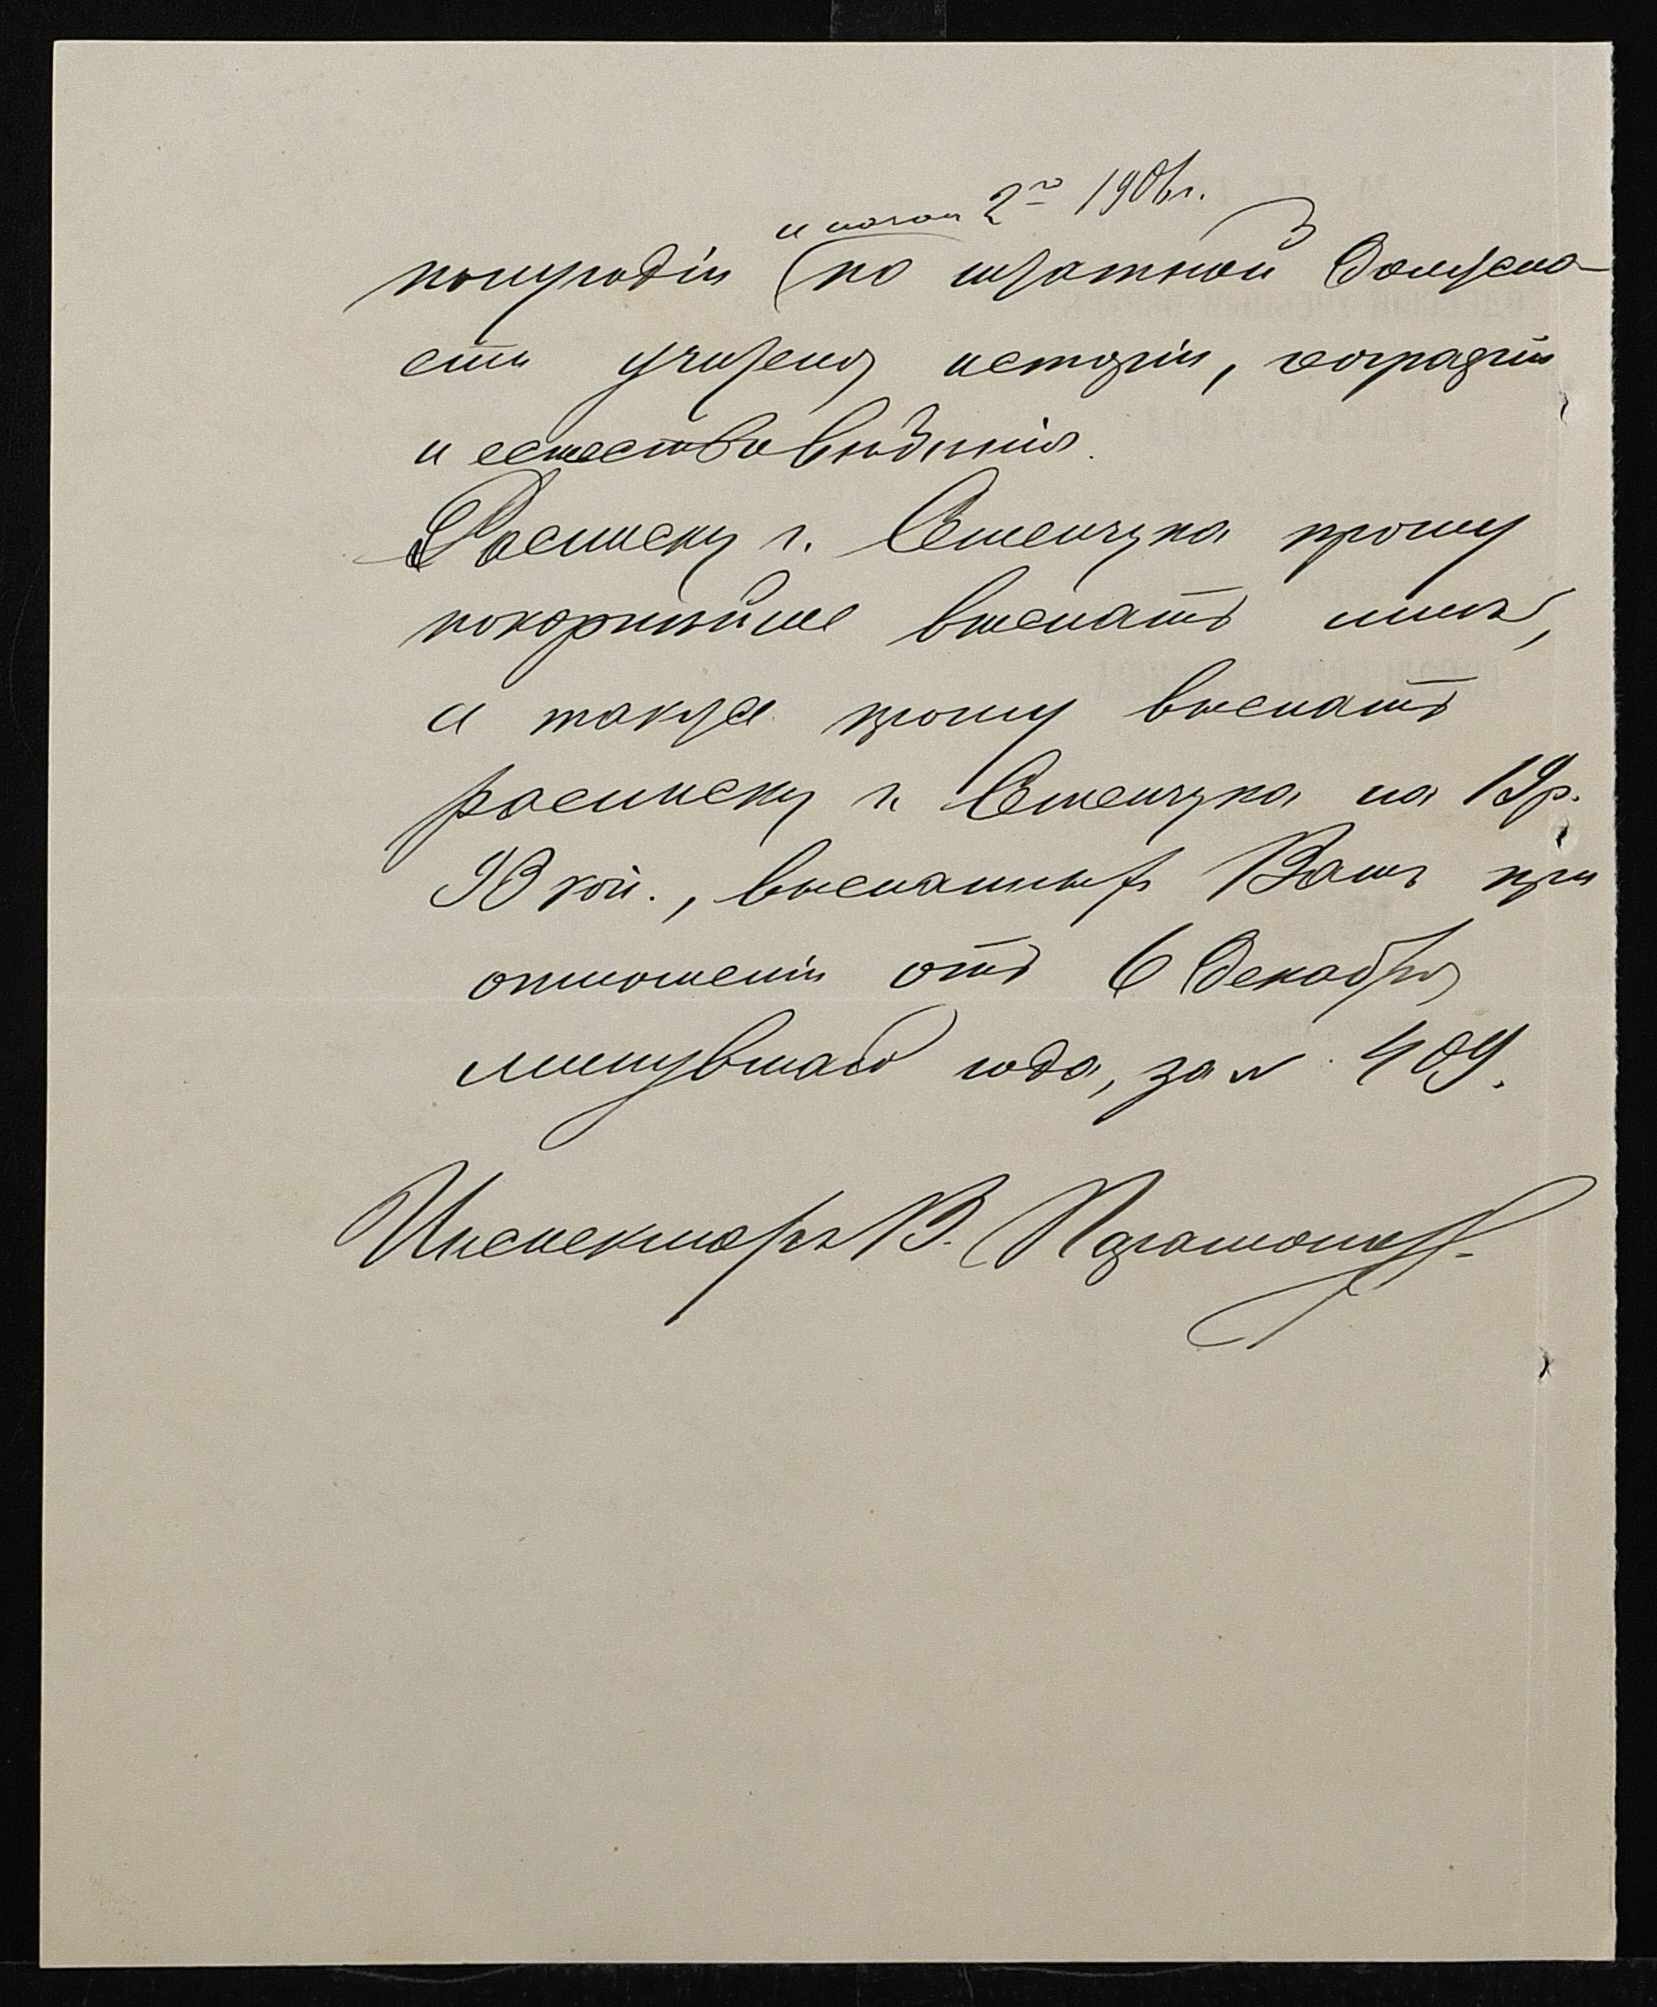 и потом 2го 1906 г.
полугодіи (по штатной должно-
сти учителя исторіи, географіи
и естествовѣдѣнія.
Росписку г. Стенчука прошу
покорнѣйше выслать мнѣ,
а также прошу выслать
росписку г. Стенчука на 19 р.
98 коп., высланныхъ Вамъ при
отношеніи отъ 6 Декабря
минувшаго года, за № 409.
Инспекторъ В. Парамоновъ